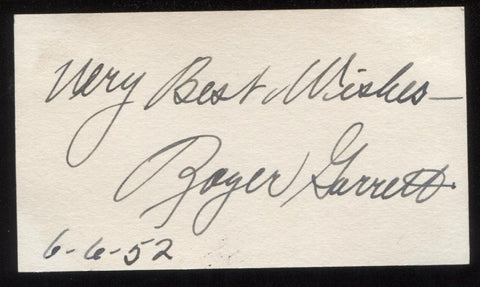 Very Best Wishes—
Roger Garrett.
6-6-52